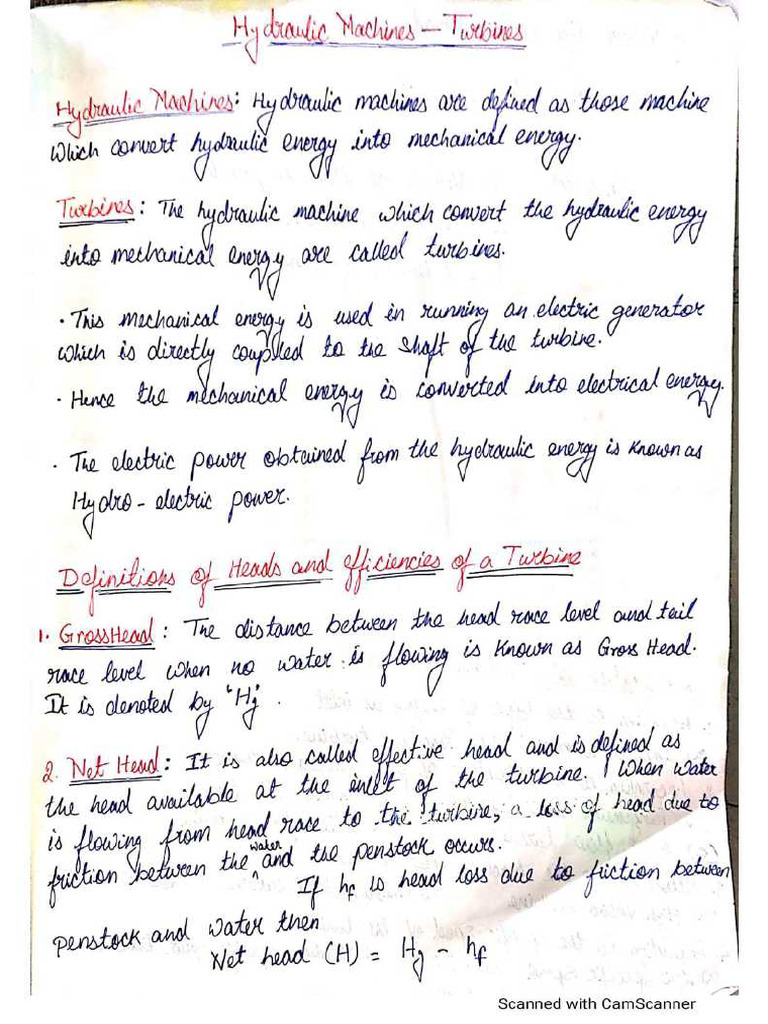 Hydraulic Machines – Turbines
Hydraulic Machines: Hydraulic machines are defined as those machine
which convert hydraulic energy into mechanical energy.
Turbines: The hydraulic machine which convert the hydraulic energy
into mechanical energy are called turbines.
· This mechanical energy is used in running an electric generator
which is directly coupled to the shaft of the turbine.
· Hence the mechanical energy is converted into electrical energy.
· The electric power obtained from the hydraulic energy is known as
Hydro-electric power.
Definitions of Heads and efficiencies of a Turbine
1. Gross Head: The distance between the head race level and tail
race level when no water is flowing is known as Gross Head.
It is denoted by 'Hg'.
2. Net Head: It is also called effective head and is defined as
the head available at the inlet of the turbine. When water
is flowing from head race to the turbine, a loss of head due to
friction between the water and the penstock occurs.
If hf is head loss due to friction between
penstock and water then
Net head (H) = Hg - hf
Scanned with CamScanner